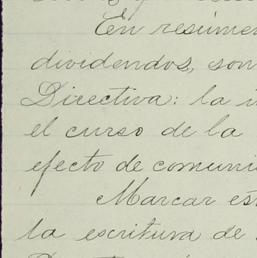 En resúmen
dividendos, son
Directiva: la i
el curso de la
efecto de comuni
Marcar es
la escritura de